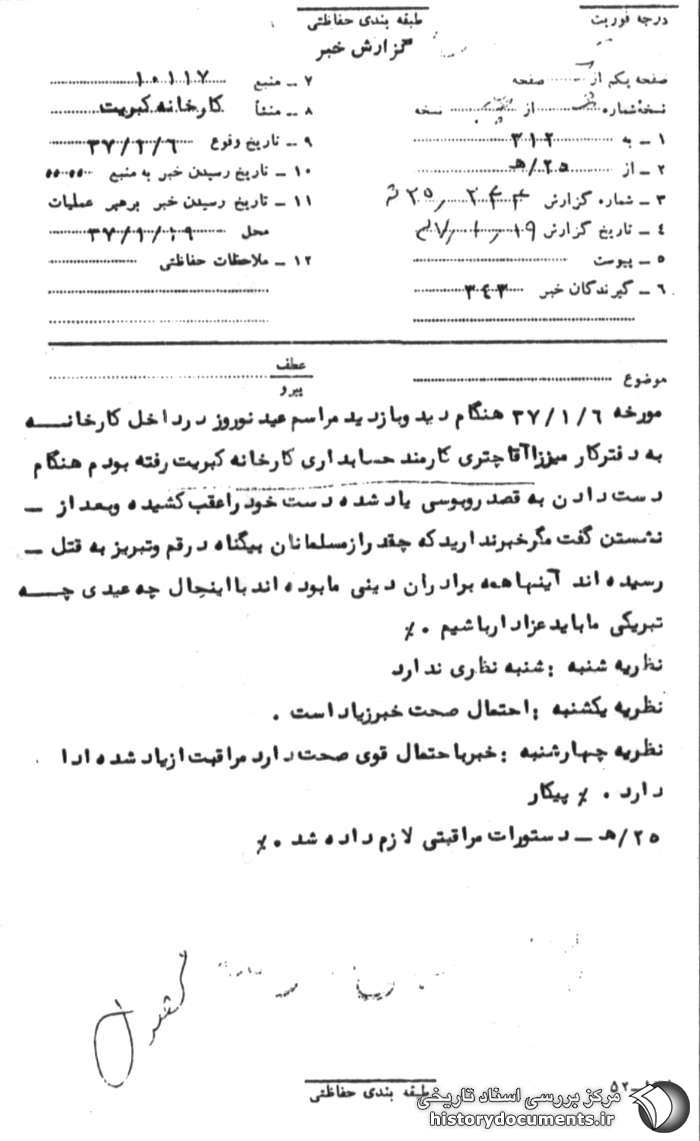 درجه فوریت
طبقه بندی حفاظتی
گزارش خبر
صفحه یکم از صفحه
نسخهٔ شماره از نسخه
۱ ــ به ۳۱۲
۲ ــ از ۲۵/هـ
۳ ــ شماره گزارش
۴ ــ تاریخ گزارش
۵ ــ پیوست
۶ ــ گیرندگان خبر ۳۴۳
۷ ــ منبع ۱۰۱۱۷
۸ ــ منشأ کارخانه کبریت
۹ ــ تاریخ وقوع ۳۷/۱/۶
۱۰ ــ تاریخ رسیدن خبر به منبع
۱۱ ــ تاریخ رسیدن خبر برهبر عملیات
محل ۳۷/۱/۱۹
۱۲ ــ ملاحظات حفاظتی
موضوع
عطف
پیرو
مورخه ۳۷/۱/۶ هنگام دید وبازدید مراسم عید نوروز درداخل کارخانه
به دفترکار میرزاآقا چتری کارمند حسابداری کارخانه کبریت رفته بودم هنگام
دست دادن به قصد روبوسی یاد شده دست خود را عقب کشیده وبعد از ــ
نشستن گفت مگر خبر ندارید که چقدر از مسلمانان بیگناه درقم وتبریز به قتل ــ
رسیده اند آینها همه برادران دینی ما بوده اند با اینحال چه عیدی چه
تبریکی ما باید عزادار باشیم ۰٪
نظریه شنبه : شنبه نظری ندارد
نظریه یکشنبه : احتمال صحت خبر زیاد است .
نظریه چهارشنبه : خبر باحتمال قوی صحت دارد مراقبت از یاد شده ادا
دارد . ٪ پیکار
۲۵/هـ ــ دستورات مراقبتی لازم داده شد ۰٪
طبقه بندی حفاظتی
مرکز بررسی اسناد تاریخی
historydocuments.ir